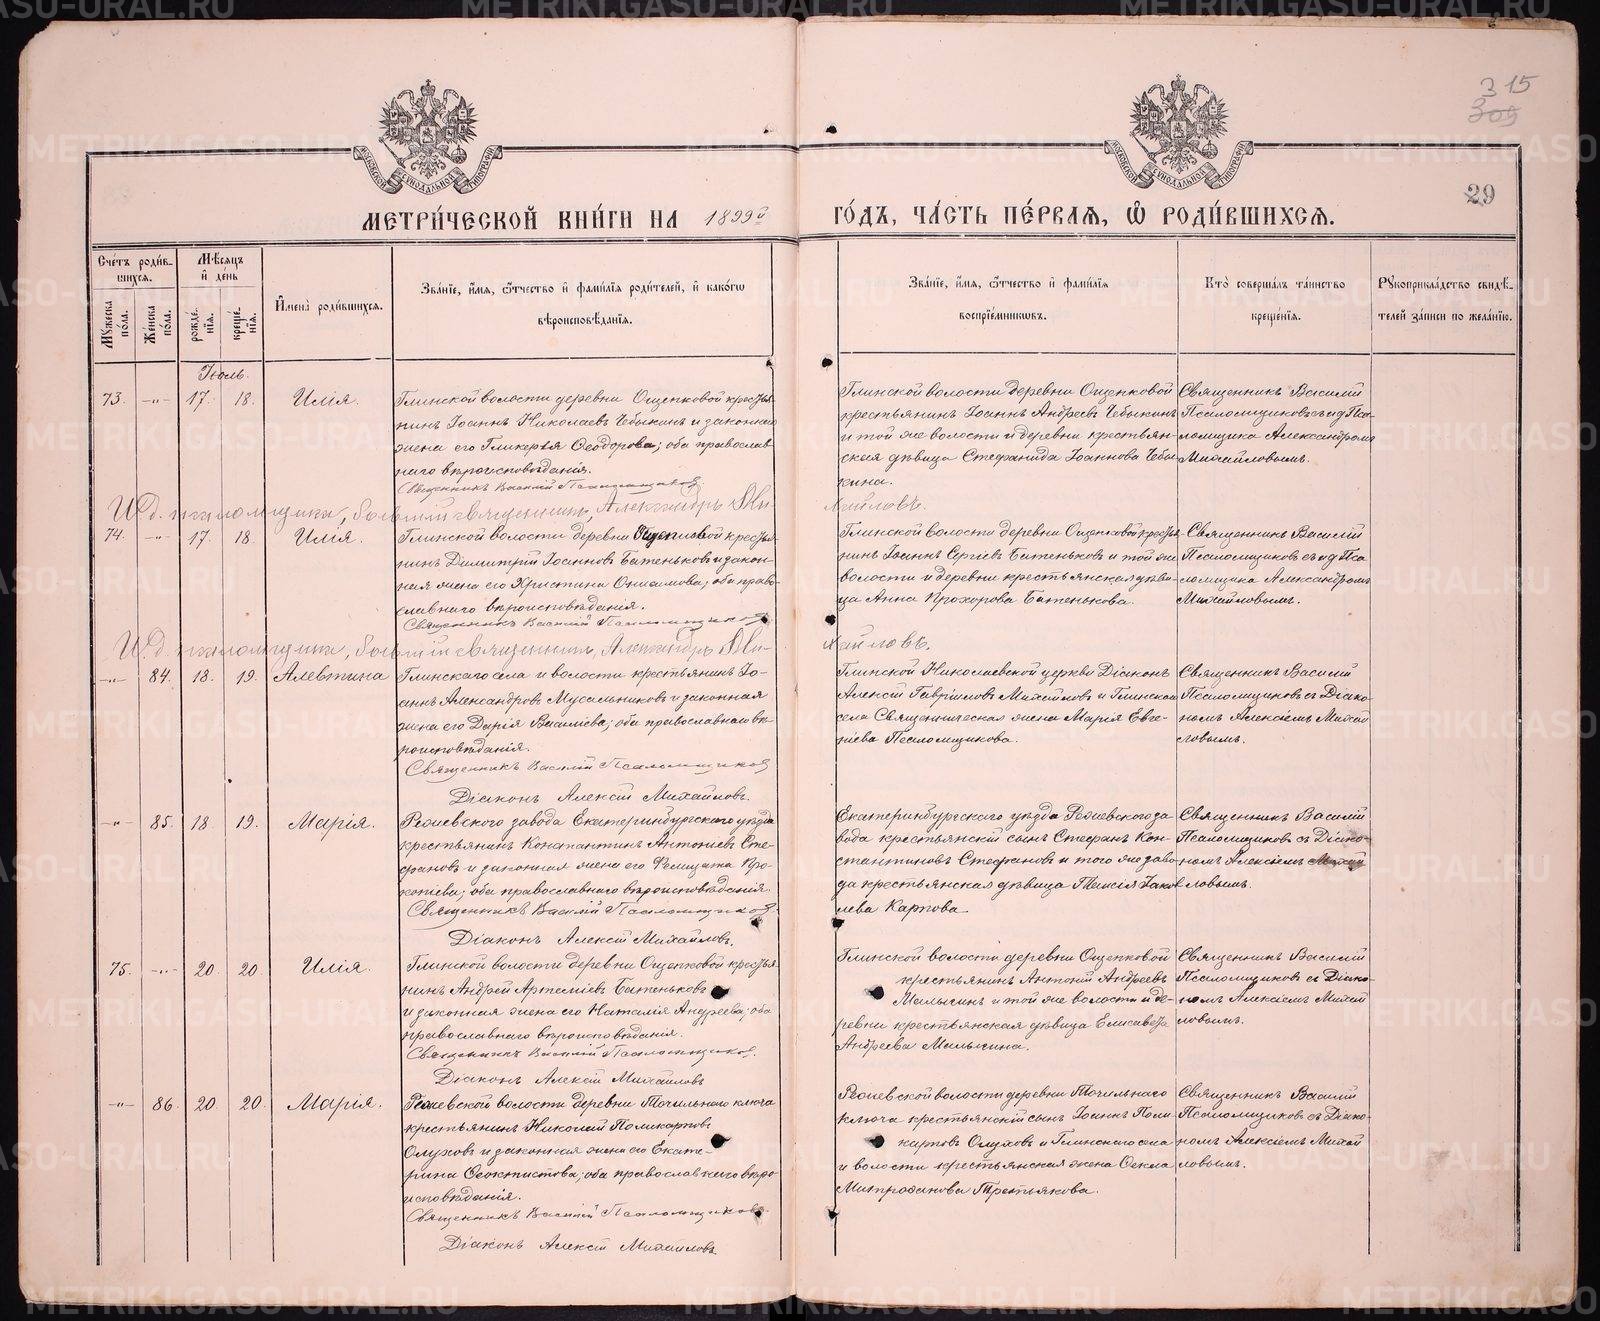 315
309
29
МЕТРИ́ЧЕСКОЙ КНИ́ГИ НА 1899й ГО́ДЪ, ЧА́СТЬ ПЕ́РВАѦ, Ѡ҆ РОДИ́ВШИХСѦ.
Сче́тъ роди́в-
шихсѧ.
Мѣ́сѧцъ
и҆ де́нь
Мꙋ́жеска по́ла.
Же́нска по́ла.
рожде́нїѧ.
креще́нїѧ.
И҆мена̀ роди́вшихсѧ.
Зва́нїе, и҆́мѧ, ѻ҆́тчество и҆ фами́лїѧ роди́телей, и҆ како́гѡ
вѣроисповѣ́данїѧ.
Зва́нїе, и҆́мѧ, ѻ҆́тчество и҆ фами́лїѧ
воспрїе́мникѡвъ.
Кто̀ соверша́лъ та́инство
креще́нїѧ.
Рꙋкоприкла́дство свидѣ́-
телей за́писи по жела́нїю.
Іюль.
73. -„- 17. 18. Илія.
Глинской волости деревни Ощепковой кресть-
янинъ Іоаннъ Николаевъ Чебыкинъ и законная
жена его Гликерія Ѳеодорова; оба православ-
наго вѣроисповѣданія.
Священникъ Василій Псаломщиковъ.
И. д. псаломщика, бывшій священникъ, Александръ Ми-
хайловъ.
Глинской волости деревни Ощепковой
крестьянинъ Іоаннъ Андреевъ Чебыкинъ
и той же волости и деревни крестьян-
ская дѣвица Стефанида Іоаннова Чебы-
кина.
Священникъ Василій
Псаломщиковъ съ и д Пса-
ломщика Александромъ
Михайловымъ.
74. -„- 17. 18. Илія.
Глинской волости деревни Ощепковой кресть-
янинъ Димитрій Іоанновъ Батеньковъ и закон-
ная жена его Христина; оба право-
славнаго вѣроисповѣданія.
Священникъ Василій Псаломщиковъ
И. д. псаломщика, бывшій священникъ, Александръ Ми-
хайловъ.
Глинской волости деревни Ощепковой кресть-
нинъ Іоаннъ Сергіевъ Батеньковъ и той же
волости и деревни крестьянская дѣви-
ца Анна Прохорова Батенькова.
Священникъ Василій
Псаломщиковъ съ и д Пса-
ломщика Александромъ
Михайловымъ.
-„- 84. 18. 19. Алевтина
Глинскаго села и волости крестьянинъ Іо-
аннъ Александровъ Мусальниковъ и законная
жена его Дарія Василіева; оба православнаго вѣ-
роисповѣданія.
Священникъ Василій Псаломщиковъ
Діаконъ Алексій Михайловъ.
Глинской Николаевской церкви Діаконъ
Алексій Гавріиловъ Михайловъ и Глинскаго
села Священническая жена Марія Евге-
ніева Псаломщикова.
Священникъ Василій
Псаломщиковъ съ Діако-
номъ Алексіемъ Михай-
ловымъ.
-„- 85. 18. 19. Марія.
Режевского завода Екатеринбургского уѣзда
крестьянинъ Константинъ Антоніевъ Сте-
фановъ и законная жена его Фелицата Про-
копіева; оба православнаго вѣроисповѣданія.
Священникъ Василій Псаломщиковъ.
Діаконъ Алексій Михайловъ.
Екатеринбургского уѣзда Режевского за
вода крестьянскій сынъ Стефанъ Кон-
стантиновъ Стефановъ и того же заво
да крестьянская дѣвица Таисія Іаков
лева Карпова.
Священникъ Василій
Псаломщиковъ съ Діако-
номъ Алексіемъ Михай
ловымъ.
75. -„- 20. 20. Илія.
Глинской волости деревни Ощепковой крестья-
нинъ Андрей Артеміевъ Батеньковъ
и законная жена его Наталія Андреева; оба
православнаго вѣроисповѣданія.
Священникъ Василій Псаломщиковъ.
Діаконъ Алексій Михайловъ
Глинской волости деревни Ощепковой
крестьянинъ Антоній Андреевъ
Малыгинъ и той же волости и де-
ревни крестьянская дѣвица Елисавета
Андреева Малыгина.
Священникъ Василій
Псаломщиковъ съ Діако-
номъ Алексіемъ Михай
ловымъ.
-„- 86. 20. 20. Марія.
Режевской волости деревни Точильнаго ключа
крестьянинъ Николай Поликарповъ
Олуховъ и законная жена его Екате-
рина Ѳеоктистова; оба православнаго вѣро
исповѣданія.
Священникъ Василій Псаломщиковъ.
Діаконъ Алексій Михайловъ
Режевской волости деревни Точильнаго
ключа крестьянскій сынъ Іоаннъ Поли
карповъ Олуховъ и Глинскаго села
и волости крестьянская жена Ѳекла
Митрофанова Третьякова.
Священникъ Василій
Псаломщиковъ съ Діако-
номъ Алексіемъ Михай
ловымъ.
METRIKI.GASO-URAL.RU